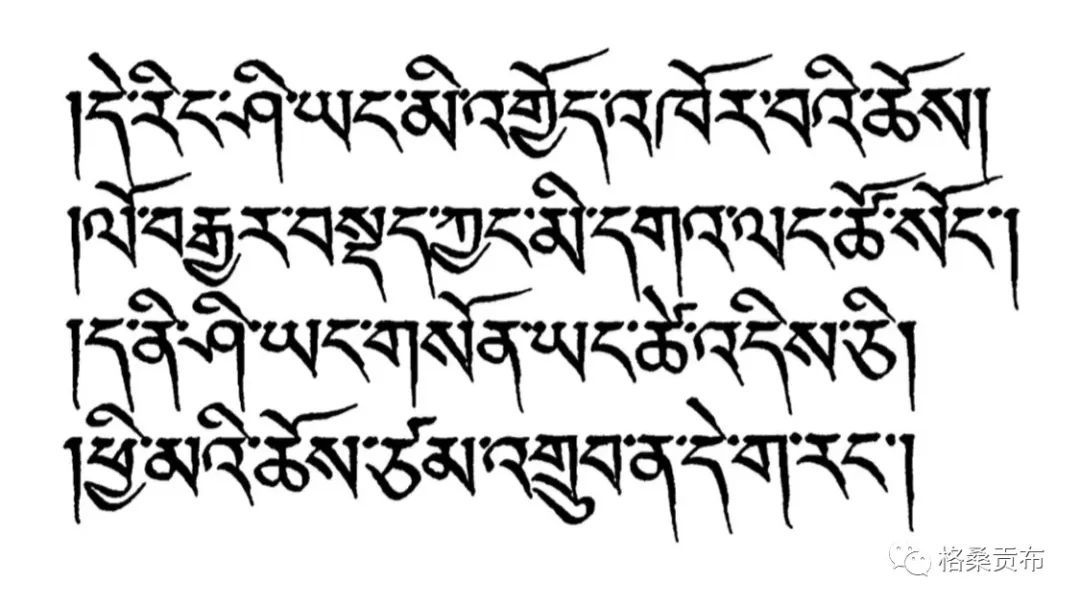 །དེ་རིང་ཤི་ཡང་མི་འགྱོད་འཁོར་བའི་ཆོས།
།ལོ་བརྒྱར་བསྡད་ཀྱང་མི་དགའ་ལང་ཚོ་སོང་།
།ད་ནི་ཤི་ཡང་གསོན་ཡང་ཚེ་འདིས་ཅི།
།ཕྱི་མའི་ཆོས་ཙམ་འགྲུབ་ན་དེ་ག་རང་།
格桑贡布